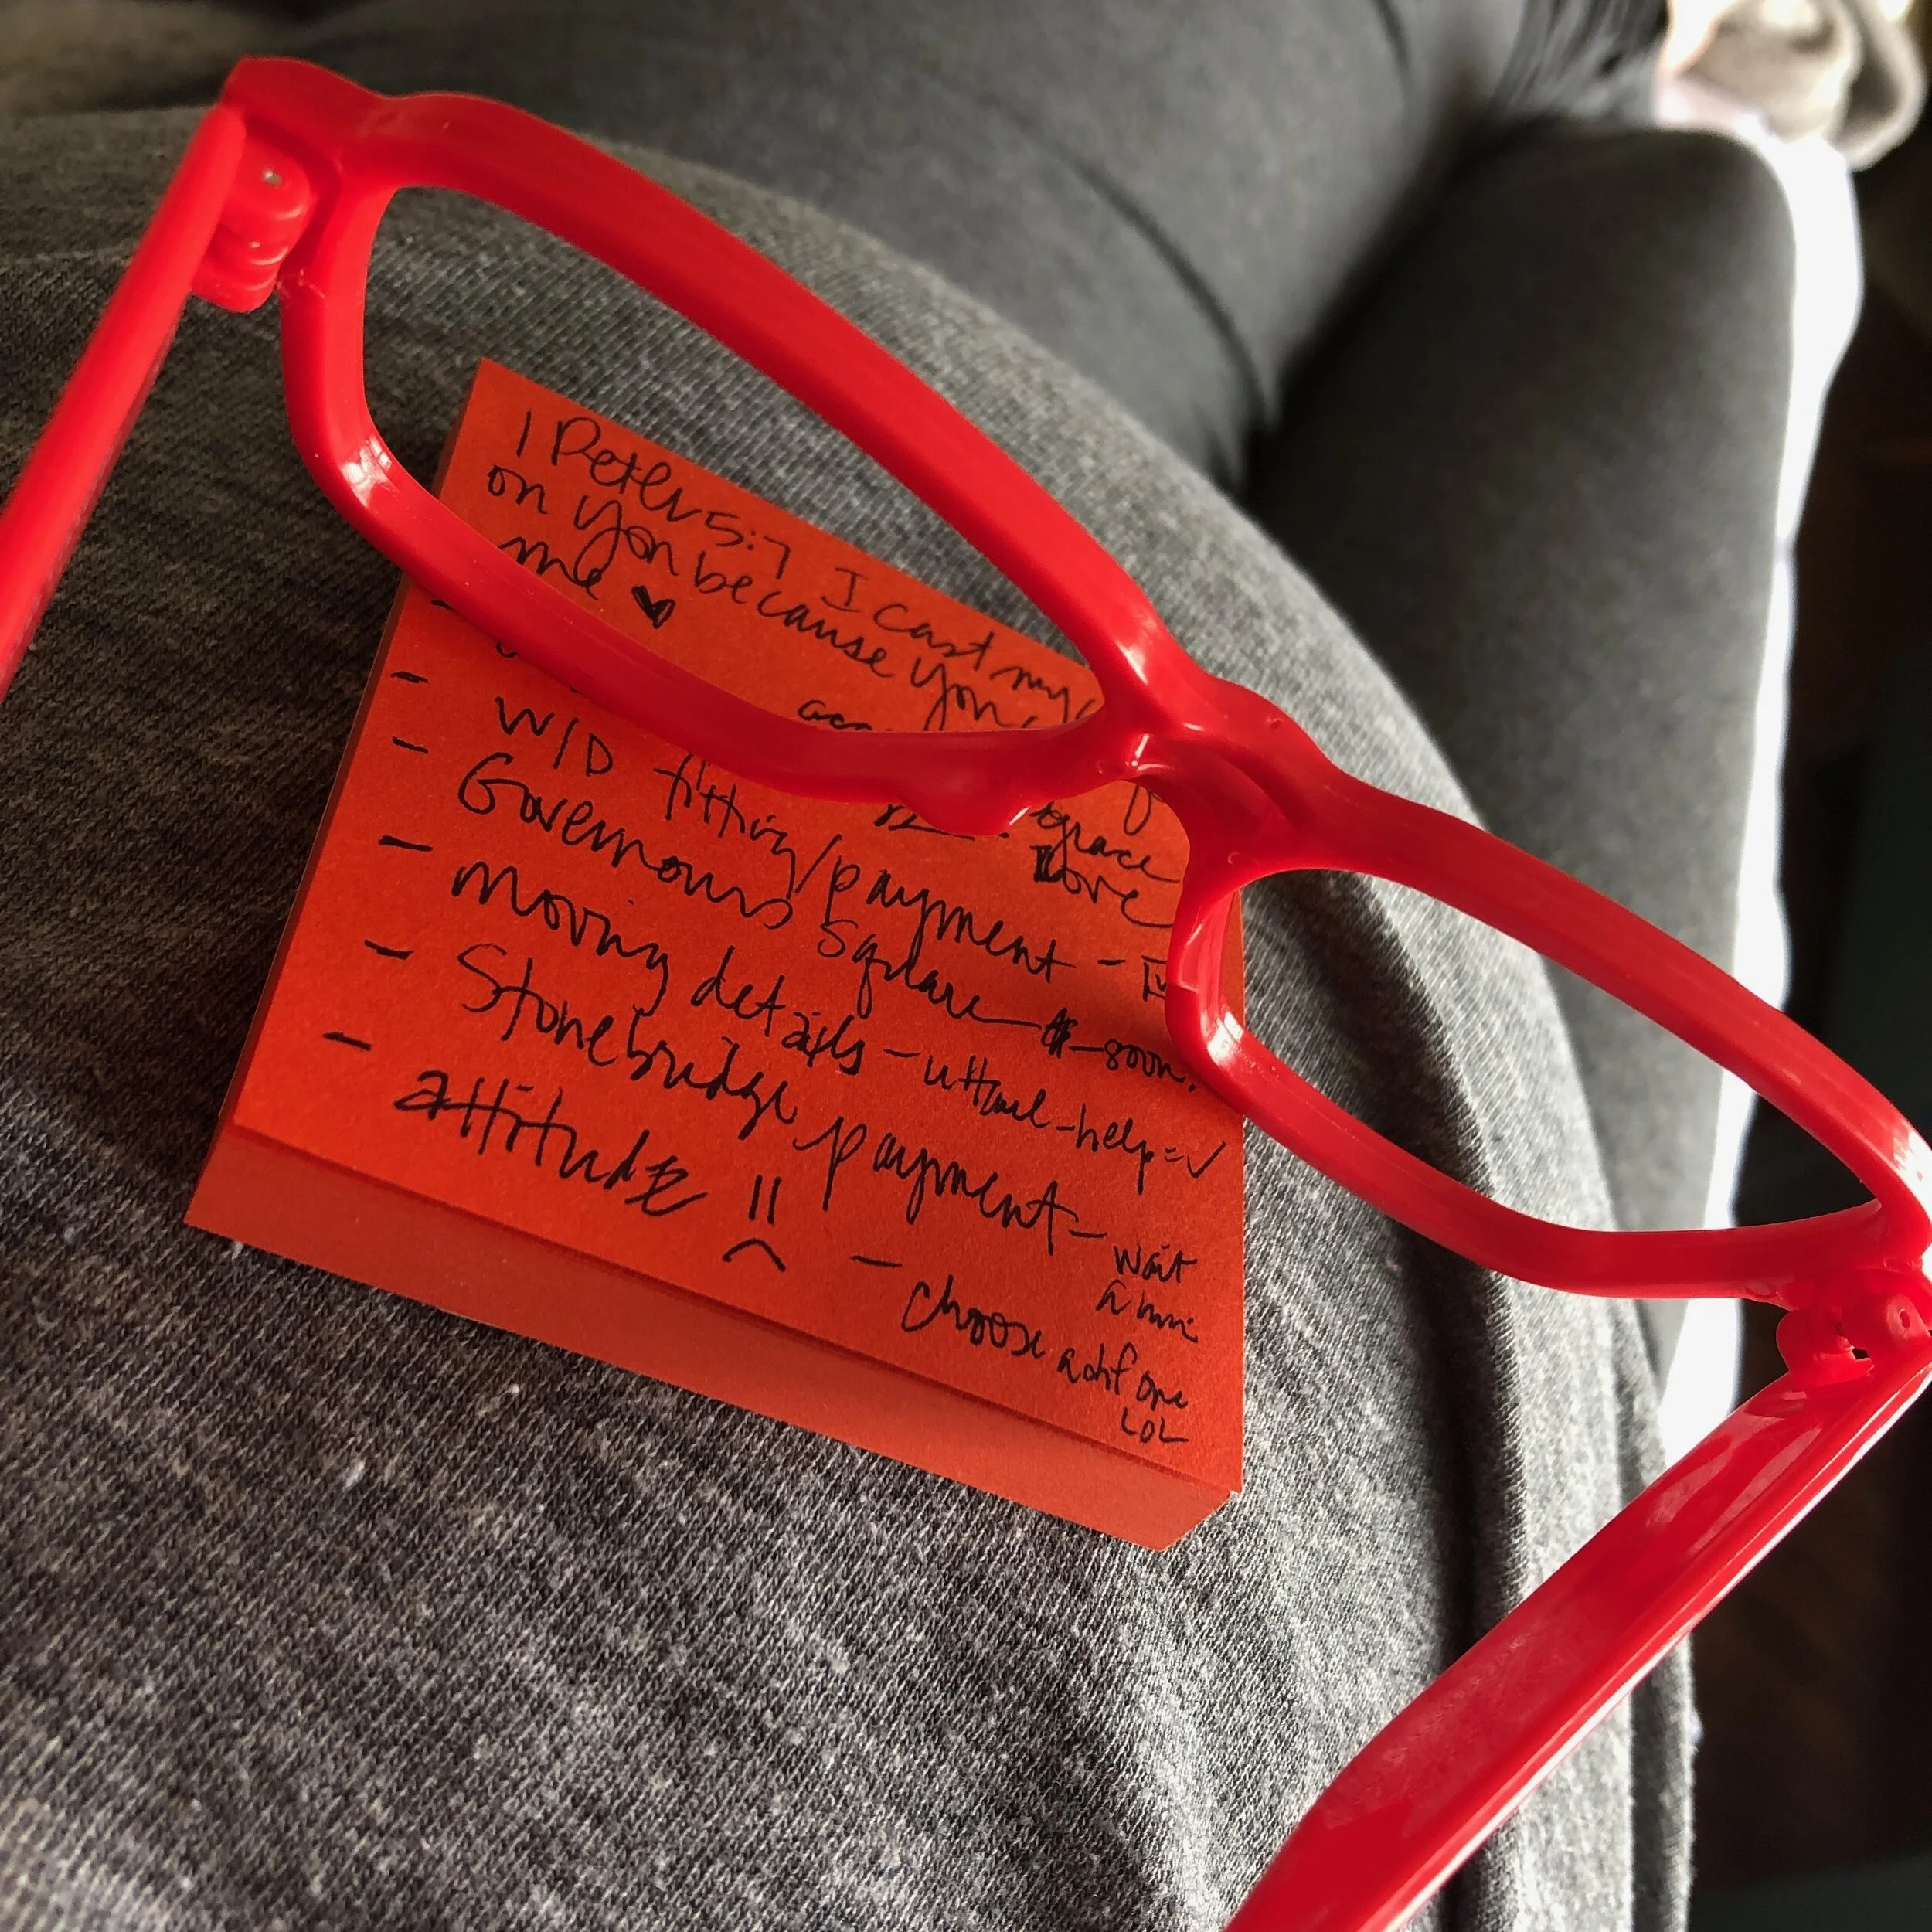 1 Peter 5:7 I cast my
on you because you
me ♥
grace
love
- W/D fitting/payment -
- Governours Square - soon!
- moving details - uHaul - help = ✓
- Stonebridge payment - wait
- attitude
- choose a diff one
LOL